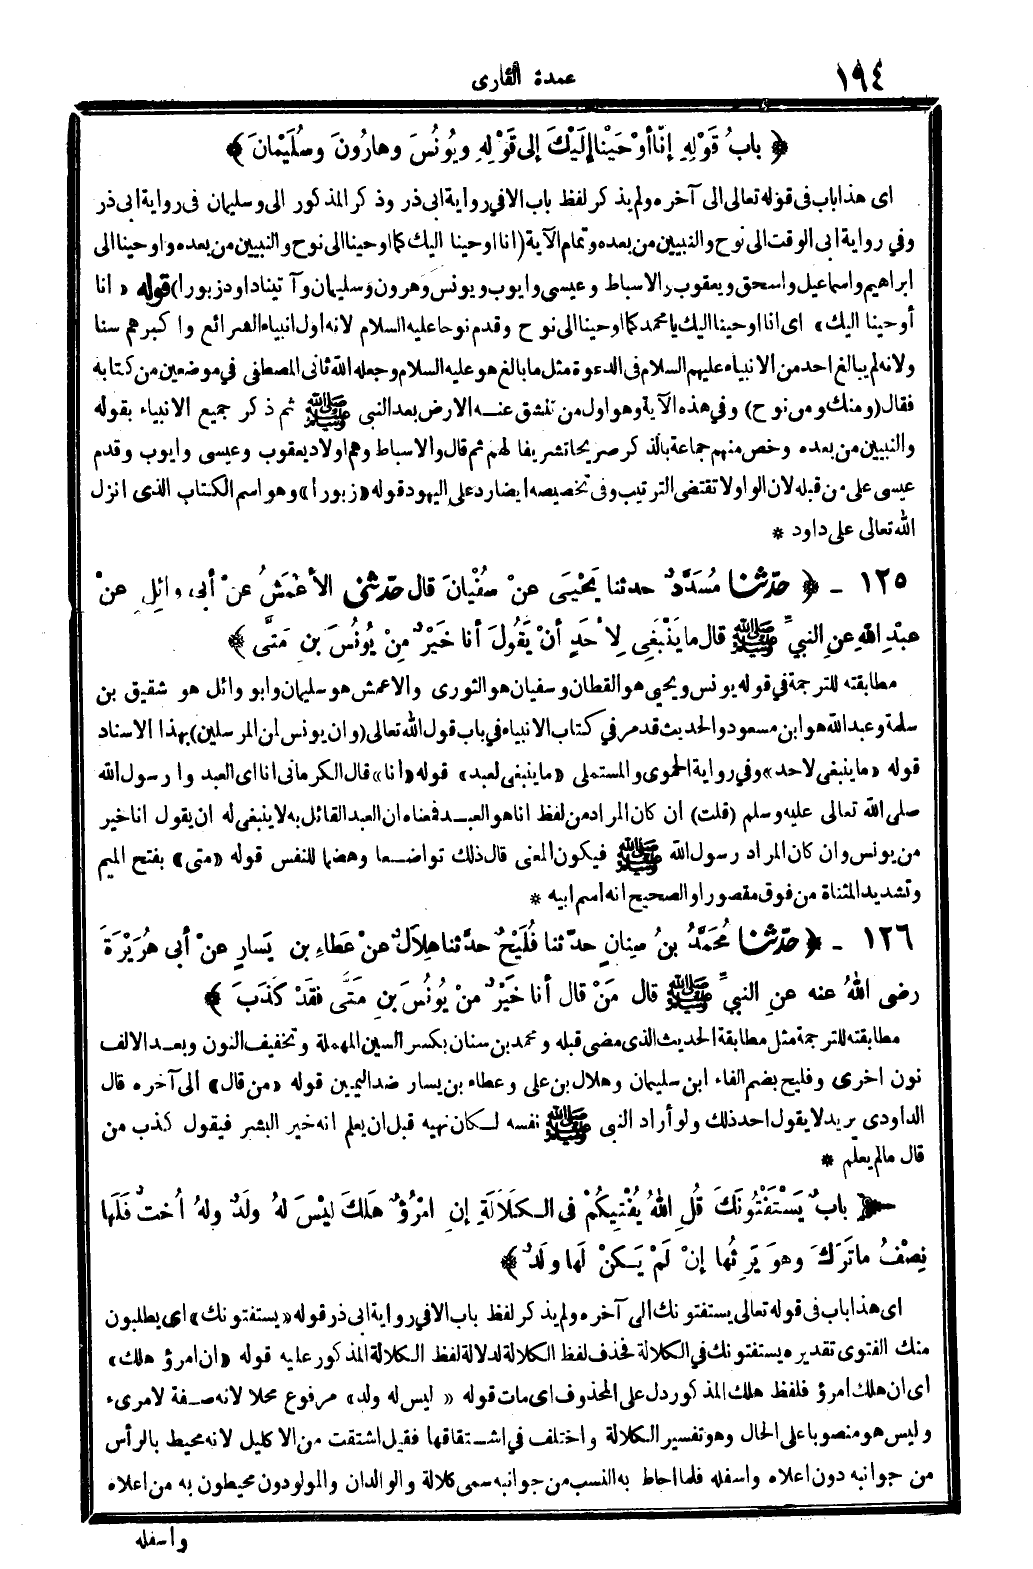 ١٩٤ عمدة القارى
﴿ بابُ قَوْلِهِ إنّا أوْحَيْنا إلَيْكَ إلى قَوْلِهِ ويُونُسَ وهارُونَ وسُلَيْمانَ ﴾
اى هذا باب فى قوله تعالى الى آخره ولم يذكر لفظ باب الا في رواية ابى ذر وذكر المذكور الى وسليمان فى رواية ابى ذر
وفي رواية ابى الوقت الى نوح والنبيين من بعده وتمام الآية (انا اوحينا اليك كما اوحينا الى نوح والنبيين من بعده واوحينا الى
ابراهيم واسماعيل واسحق ويعقوب والاسباط وعيسى وايوب ويونس وهرون وسليمان وآتينا داود زبورا) قوله «انا
أوحينا اليك» اى انا اوحينا اليك يا محمد كما اوحينا الى نوح وقدم نوحا عليه السلام لانه اول انبياء الشرائع واكبرهم سنا
ولانه لم يبالغ احد من الانبياء عليهم السلام فى الدعوة مثل ما بالغ هو عليه السلام وجعله الله ثانى المصطفى في موضعين من كتابه
فقال (ومنك ومن نوح) وفي هذه الآية وهو اول من تنشق عنه الارض بعد النبى ﷺ ثم ذكر جميع الانبياء بقوله
والنبيين من بعده وخص منهم جماعة بالذكر صريحا تشريفا لهم ثم قال والاسباط وهم اولاد يعقوب وعيسى وايوب وقدم
عيسى على من قبله لان الواو لا تقتضى الترتيب وفى تخصيصه ايضا رد على اليهود قوله «زبورا» وهو اسم الكتاب الذى انزل
الله تعالى على داود *
١٢٥ - ﴿ حدّثنا مُسَدَّدٌ حدثنا يَحْيَى عنْ سُفْيانَ قال حدّثنى الأعْمَشُ عنْ أبى وائِلٍ عنْ
عبْدِ اللهِ عنِ النبىِّ ﷺ قال ما يَنْبَغِى لِأحَدٍ أنْ يَقُولَ أنا خَيْرٌ مِنْ يُونُسَ بنِ مَتَّى ﴾
مطابقته للترجمة في قوله يونس ويحيى هو القطان وسفيان هو الثورى والاعمش هو سليمان وابو وائل هو شقيق بن
سلمة وعبد الله هو ابن مسعود والحديث قد مر في كتاب الانبياء في باب قول الله تعالى (وان يونس لمن المرسلين) بهذا الاسناد
قوله «ما ينبغى لاحد» وفي رواية الحموى والمستملى «ما ينبغى لعبد» قوله «انا» قال الكرمانى انا اى العبد او رسول الله
صلى الله تعالى عليه وسلم (قلت) ان كان المراد من لفظ انا هو العبد فمعناه ان العبد القائل به لا ينبغى له ان يقول انا خير
من يونس وان كان المراد رسول الله ﷺ فيكون المعنى قال ذلك تواضعا وهضما للنفس قوله «متى» بفتح الميم
وتشديد المثناة من فوق مقصورا والصحيح انه اسم ابيه *
١٢٦ - ﴿ حدّثنا مُحَمَّدُ بنُ سِنانٍ حدّثنا فُلَيْحٌ حدّثنا هِلالٌ عنْ عَطاءِ بنِ يَسارٍ عنْ أبى هُرَيْرَةَ
رضى اللهُ عنه عنِ النبىِّ ﷺ قال مَنْ قال أنا خَيْرٌ مِنْ يُونُسَ بنِ مَتَّى فقَدْ كَذَبَ ﴾
مطابقته للترجمة مثل مطابقة الحديث الذى مضى قبله ومحمد بن سنان بكسر السين المهملة وتخفيف النون وبعد الالف
نون اخرى وفليح بضم الفاء ابن سليمان وهلال بن على وعطاء بن يسار ضد اليمين قوله «من قال» الى آخره قال
الداودى يريد لا يقول احد ذلك ولو أراد النبى ﷺ نفسه لكان نهيه قبل ان يعلم انه خير البشر فيقول كذب من
قال ما لم يعلم *
﴿ بابٌ يَسْتَفْتُونَكَ قُلِ اللهُ يُفْتِيكُمْ فى الكَلَالَةِ إنِ امْرُؤٌ هَلَكَ لَيْسَ لهُ ولَدٌ ولهُ أُخْتٌ فَلَها
نِصْفُ ما تَرَكَ وهوَ يَرِثُها إنْ لَمْ يَكنْ لَها ولَدٌ ﴾
اى هذا باب فى قوله تعالى يستفتونك الى آخره ولم يذكر لفظ باب الا في رواية ابى ذر قوله «يستفتونك» اى يطلبون
منك الفتوى تقديره يستفتونك في الكلالة فحذف لفظ الكلالة لدلالة لفظ الكلالة المذكور عليه قوله «ان امرؤ هلك»
اى ان هلك امرؤ فلفظ هلك المذكور دل على المحذوف اى مات قوله «ليس له ولد» مرفوع محلا لانه صفة لامرىء
وليس هو منصوبا على الحال وهو تفسير الكلالة واختلف في اشتقاقها فقيل اشتقت من الاكليل لانه محيط بالرأس
من جوانبه دون اعلاه واسفله فلما احاط به النسب من جوانبه سمى كلالة والوالدان والمولودون محيطون به من اعلاه
واسفله